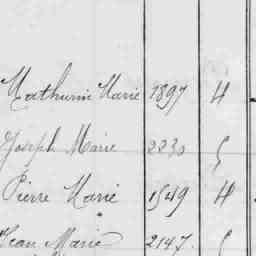 Mathurin Marie 1897 4
Joseph Marie 2230
Pierre Marie 1549 4
Jean Marie 2147.